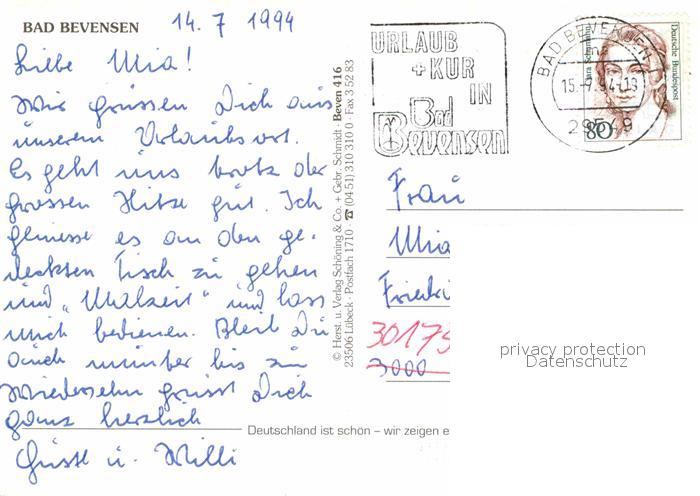 BAD BEVENSEN 14.7 1994
Liebe Mia!
Wir grüssen Dich aus
unserem Urlaubsort.
Es geht uns trotz der
grossen Hitze gut. Ich
geniesse es an den ge-
deckten Tisch zu gehen
und „Malzeit" und lass
mich bedienen. Bleib Du
auch munter bis zu
Wiedersehn grüsst Dich
ganz herzlich
Gustl u. Willi
© Herst. u. Verlag Schöning & Co. + Gebr. Schmidt · Beven 416
23506 Lübeck · Postfach 1710 · ☎ (04 51) 310 310 0 · Fax 3 52 83
Deutschland ist schön – wir zeigen e
URLAUB
+ KUR
IN
Bad
Bevensen
BAD BEVENSEN 1
15.-7.94-18
29549
Deutsche Bundespost
80
Frau
Mia
Friedri
30179
3000
privacy protection
Datenschutz